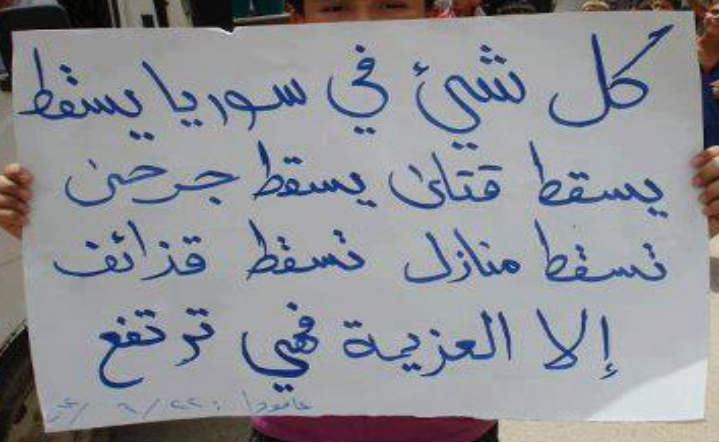 كل شيئ في سوريا يسقط
يسقط قتلى يسقط جرحى
تسقط منازل تسقط قذائف
إلا العزيمة فهي ترتفع
عامودا :